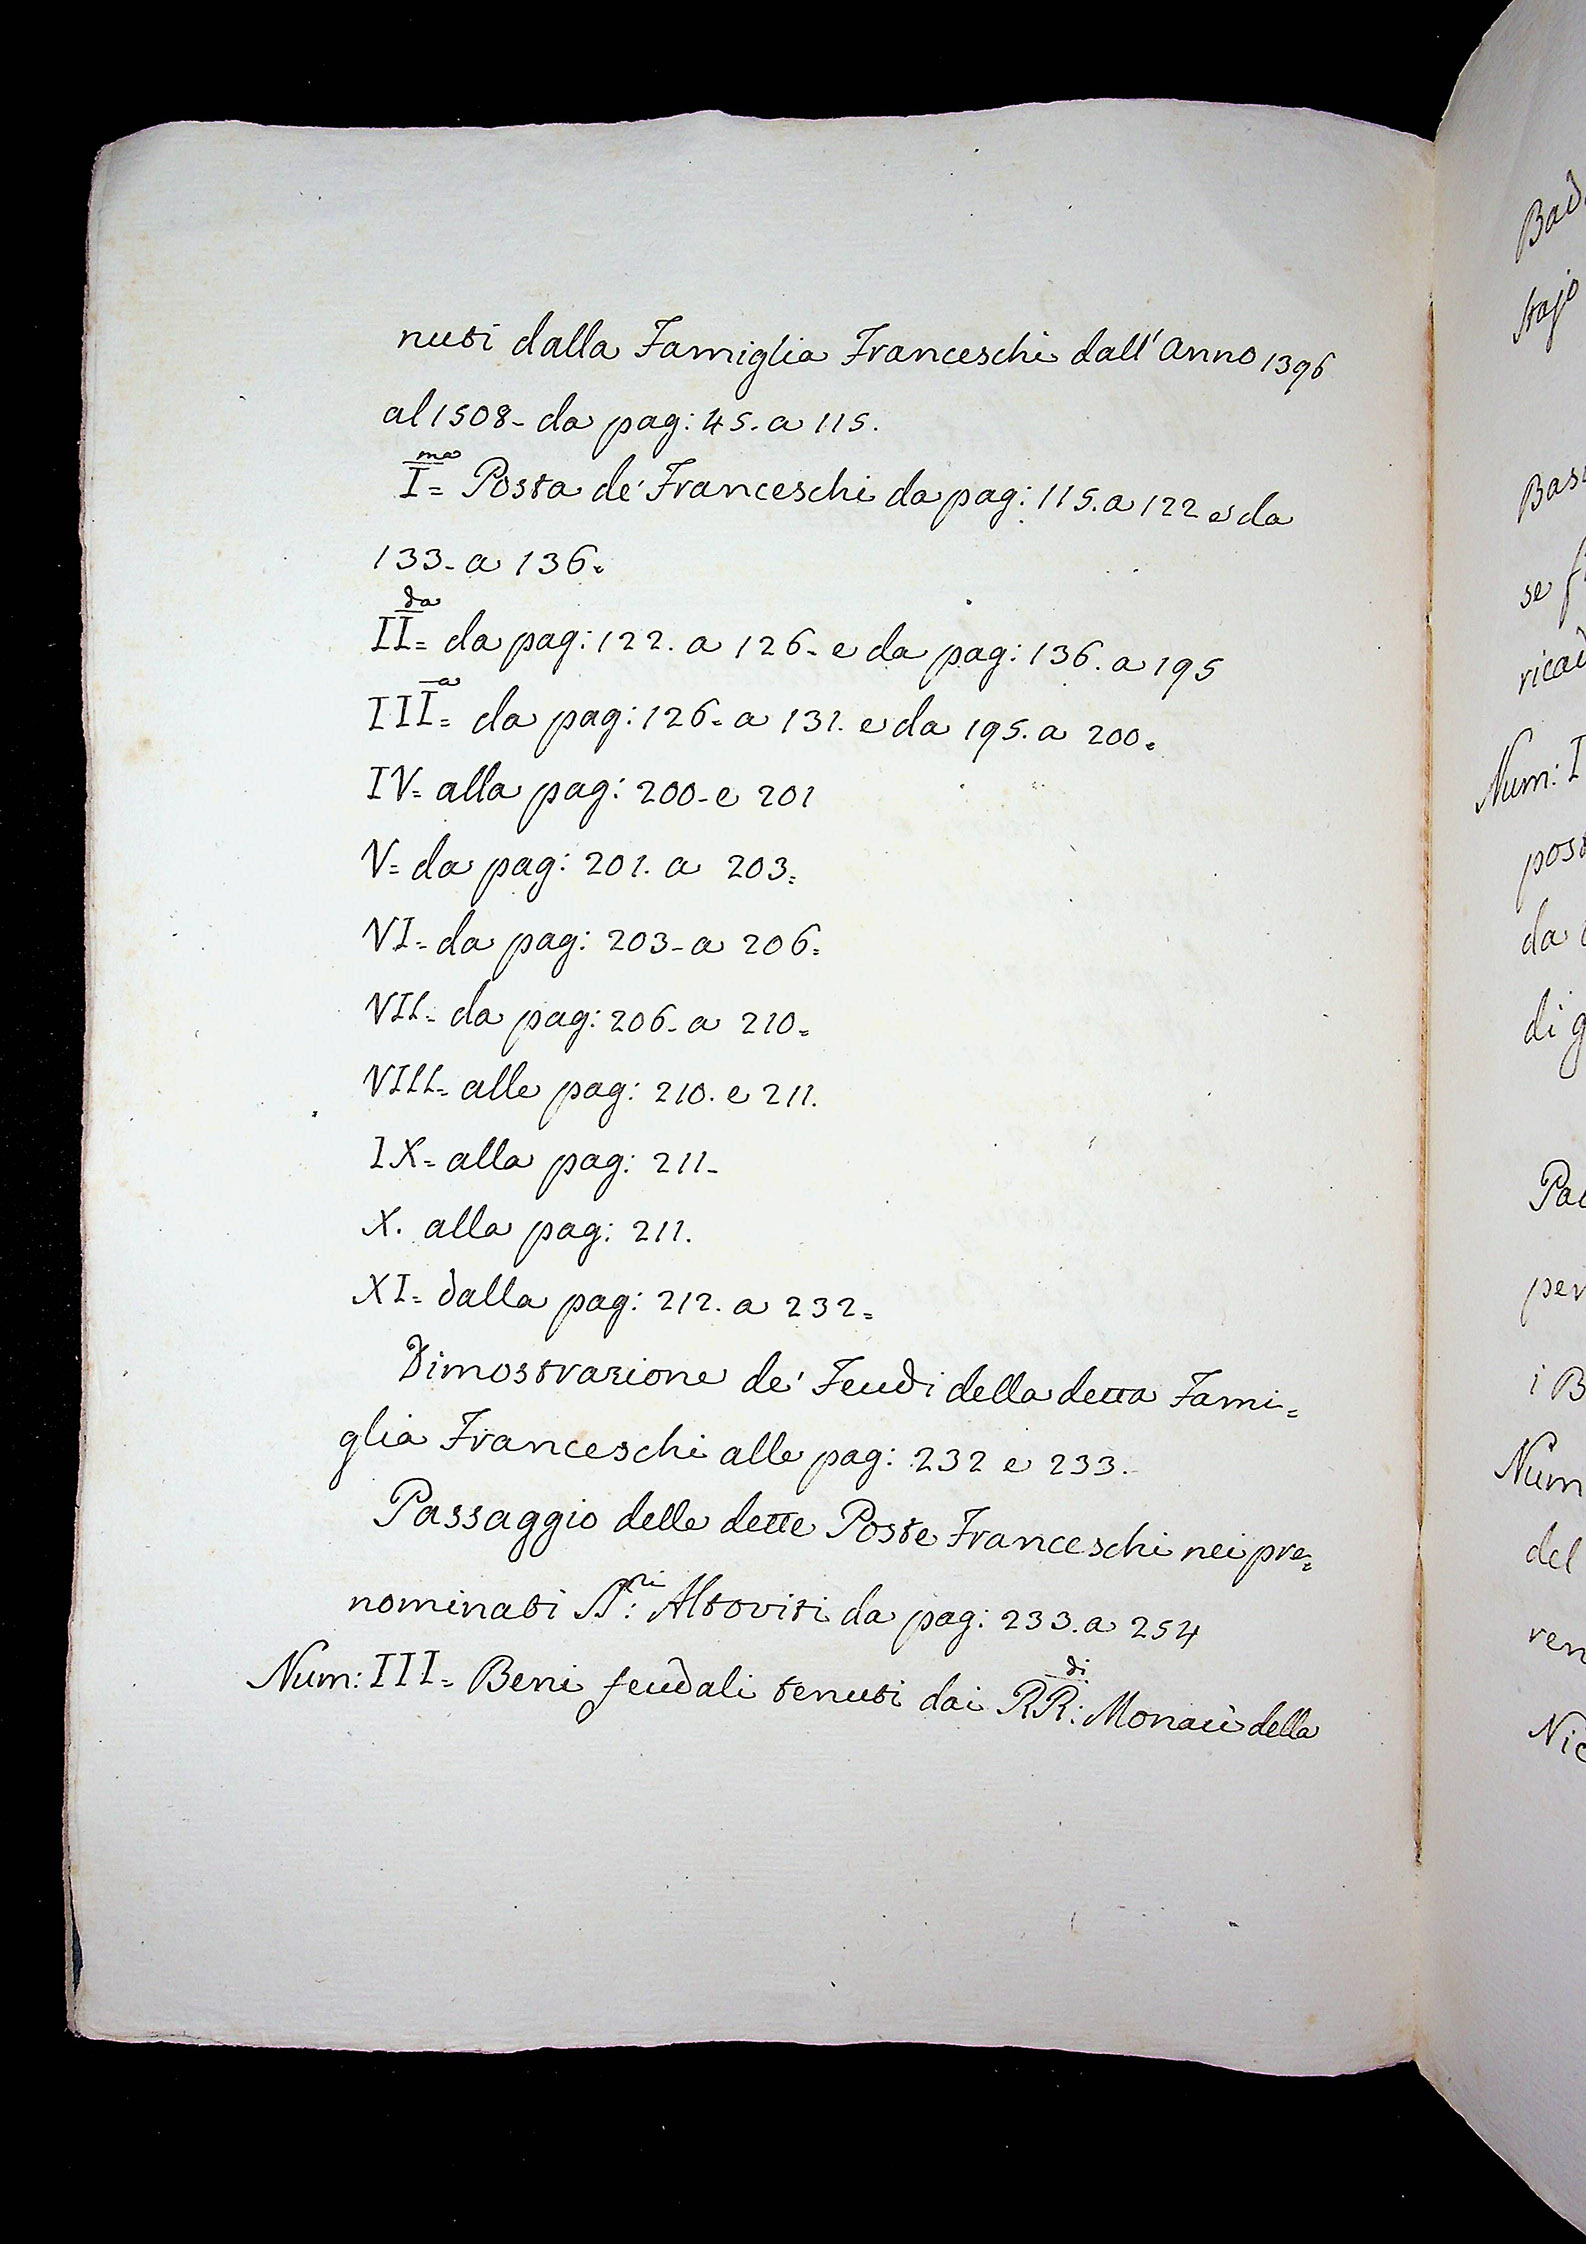 nuti dalla Famiglia Franceschi dall'Anno 1396
al 1508- da pag: 45. a 115.
I.ma= Posta de' Franceschi da pag: 115. a 122 e da
133- a 136=
II.da= da pag: 122. a 126- e da pag: 136. a 195
III.a= da pag: 126= a 131. e da 195. a 200=
IV= alla pag: 200- e 201
V= da pag: 201. a 203=
VI= da pag: 203- a 206=
VII= da pag: 206- a 210=
VIII= alle pag: 210. e 211.
IX= alla pag: 211-
X. alla pag: 211.
XI= dalla pag: 212. a 232=
Dimostrazione de' Feudi della detta Fami=
glia Franceschi alle pag: 232 e 233.
Passaggio delle dette Poste Franceschi nei pre=
nominati SS:ri Altoviti da pag: 233. a 254
Num: III= Beni feudali tenuti dai RR:di Monaci della
Bad
stajo
Bas
se f
rica
Num: I
post
da
di g
Pa
per
i B
Num
del
ren
Nic